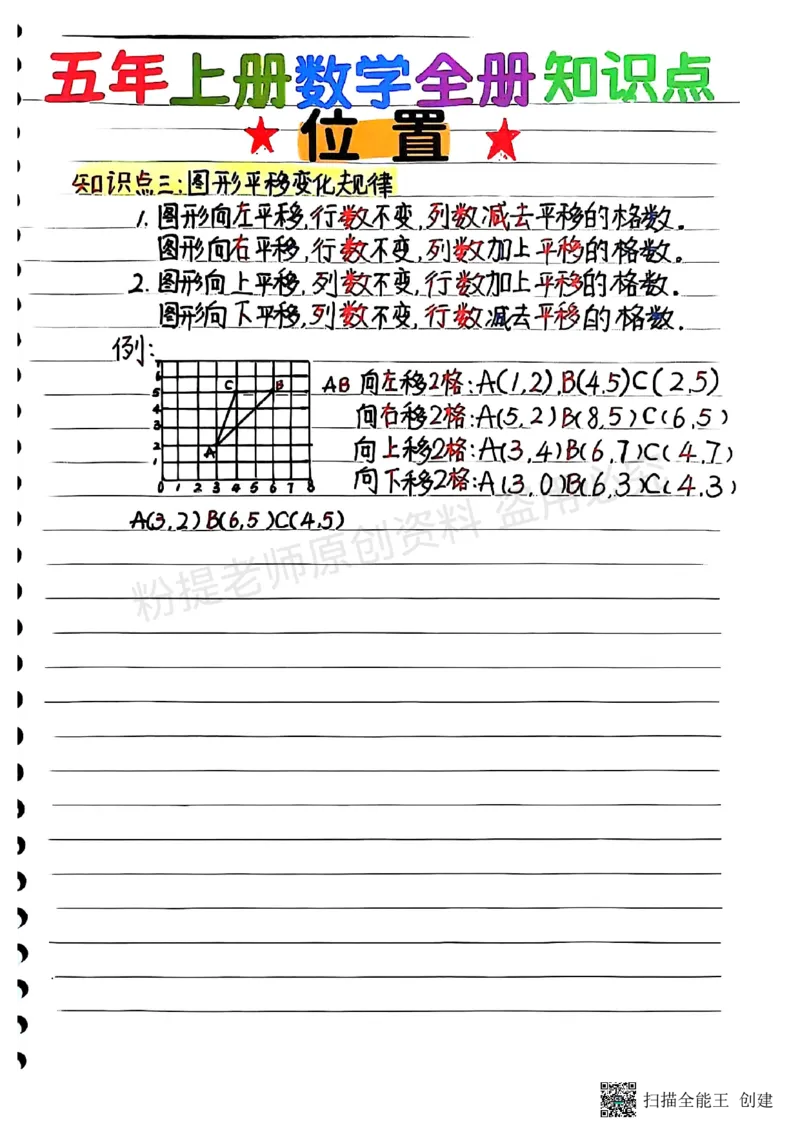 五年上册数学全册知识点
★位置★
知识点三:图形平移变化规律
1. 图形向左平移,行数不变,列数减去平移的格数。
图形向右平移,行数不变,列数加上平移的格数。
2. 图形向上平移,列数不变,行数加上平移的格数。
图形向下平移,列数不变,行数减去平移的格数。
例:
7
6
5
4
3
2
1
C
B
A
0 1 2 3 4 5 6 7 8
AB 向左移2格:A(1,2),B(4,5)C(2,5)
向右移2格:A(5,2)B(8,5)C(6,5)
向上移2格:A(3,4)B(6,7)C(4,7)
向下移2格:A(3,0)B(6,3)C(4,3)
A(3,2)B(6,5)C(4,5)
粉提老师原创资料 盗用必究
扫描全能王 创建